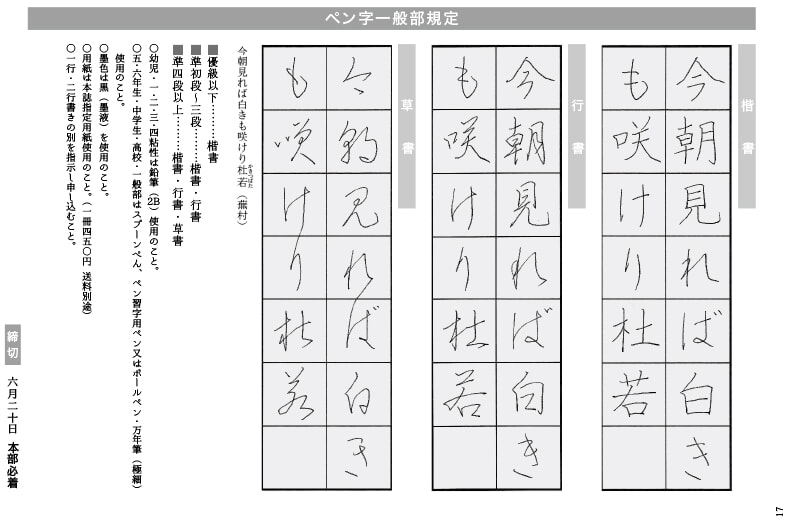 ペン字一般部規定
楷書
今朝見れば白き
も咲けり杜若
行書
今朝見れば白き
も咲けり杜若
草書
今朝見れば白き
も咲けり杜若
今朝見れば白きも咲けり杜若（蕪村）
かきつばた
■優級以下………楷書
■準初段〜三段………楷書・行書
■準四段以上………楷書・行書・草書
○幼児・一・二・三・四粘性は鉛筆（2B）使用のこと。
○五・六年生・中学生・高校・一般部はスプーンぺん、ペン習字用ペン又はボールペン・万年筆（極細）
使用のこと。
○墨色は黒（墨液）を使用のこと。
○用紙は本誌指定用紙使用のこと。（一冊四五〇円 送料別途）
○一行・二行書きの別を指示し申し込むこと。
締切
六月二十日 本部必着
17